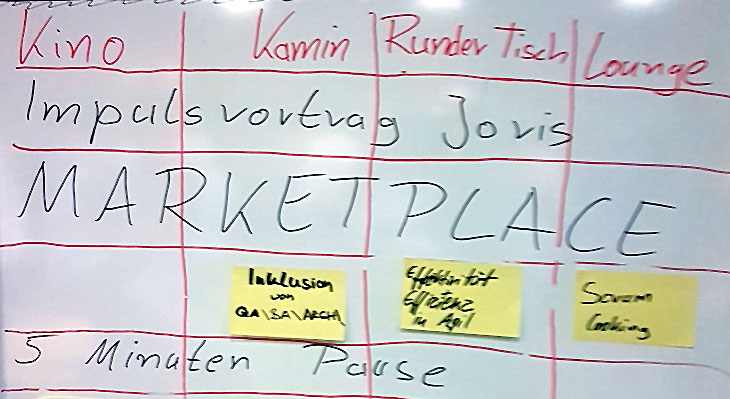 Kino Kamin Runder Tisch Lounge
Impulsvortrag Joris
MARKETPLACE
Inklusion
von
QA\SA\ARCH\
Effektivität
Effizienz
in Agil
Scrum
Cooking
5 Minuten Pause